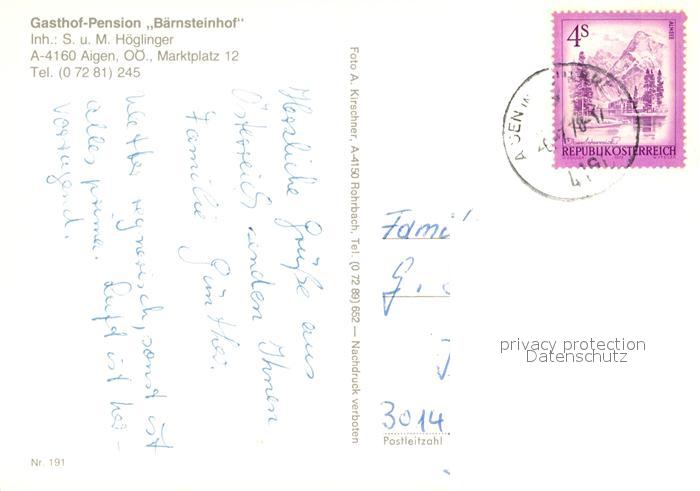 Gasthof-Pension „Bärnsteinhof“
Inh.: S. u. M. Höglinger
A-4160 Aigen, OÖ., Marktplatz 12
Tel. (0 72 81) 245
Herzliche Grüße aus
Österreich senden Ihnen
Familie Günther.
Wetter regnerisch, sonst ist
alles prima. Luft ist her-
vorragend.
Nr. 191
Foto A. Kirschner, A-4150 Rohrbach, Tel. (0 72 89) 652 — Nachdruck verboten
4S
ALMSEE
REPUBLIK ÖSTERREICH
AIGEN
Fami
G.
3014
Postleitzahl
privacy protection
Datenschutz